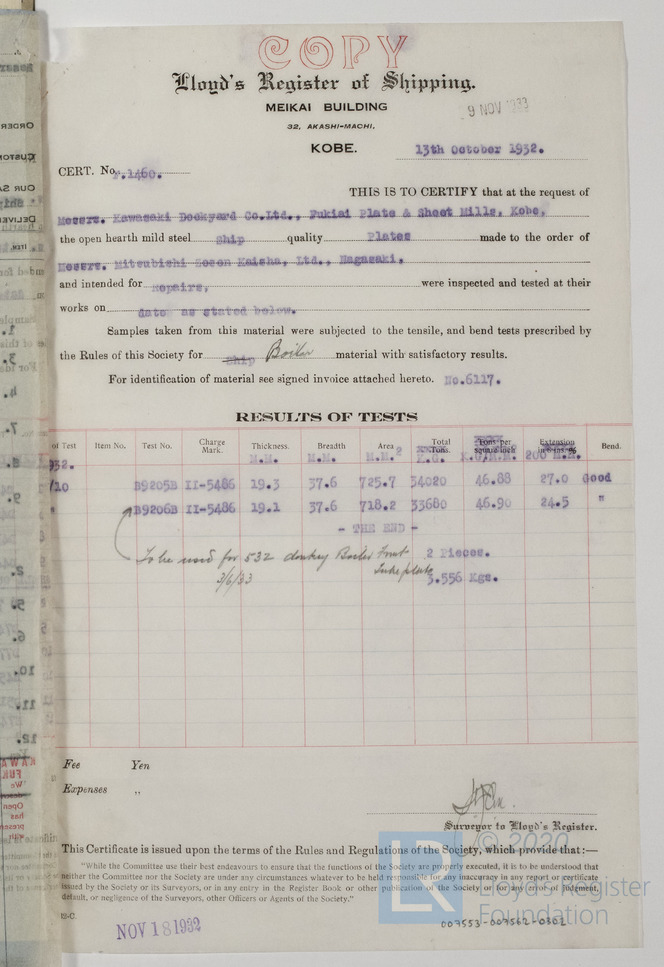 COPY
Lloyd's Register of Shipping.
MEIKAI BUILDING
9 NOV 1933
32, AKASHI-MACHI,
KOBE. 13th October 1932.
CERT. No. 1460.
THIS IS TO CERTIFY that at the request of
Messrs. Kawasaki Dockyard Co.Ltd., Fukiai Plate & Sheet Mills, Kobe,
the open hearth mild steel Ship quality Plates made to the order of
Messrs. Mitsubishi Zosen Kaisha, Ltd., Nagasaki.
and intended for Repairs, were inspected and tested at their
works on date as stated below.
Samples taken from this material were subjected to the tensile, and bend tests prescribed by
the Rules of this Society for Ship Boiler material with satisfactory results.
For identification of material see signed invoice attached hereto. No.6117.
RESULTS OF TESTS
of Test Item No. Test No. Charge Mark. Thickness. Breadth Area Total Tons. Tons per square inch Extension Bend.
M.M. M.M. M.M.2 200 M.M.
932.
/10 B9205B II-5486 19.3 37.6 725.7 34020 46.88 27.0 Good
" B9206B II-5486 19.1 37.6 718.2 33680 46.90 24.5 "
- THE END -
To be used for 532 donkey Boiler Front 2 Pieces.
3/6/33 Tube plate 3.556 Kgs.
Fee Yen
Expenses "
Surveyor to Lloyd's Register.
This Certificate is issued upon the terms of the Rules and Regulations of the Society, which provide that:—
"While the Committee use their best endeavours to ensure that the functions of the Society are properly executed, it is to be understood that
neither the Committee nor the Society are under any circumstances whatever to be held responsible for any inaccuracy in any report or certificate
issued by the Society or its Surveyors, or in any entry in the Register Book or other publication of the Society or for any error of judgment,
default, or negligence of the Surveyors, other Officers or Agents of the Society."
12-C.
NOV 18 1932
© 2020
LR Lloyd's Register
Foundation
007553-007562-0302